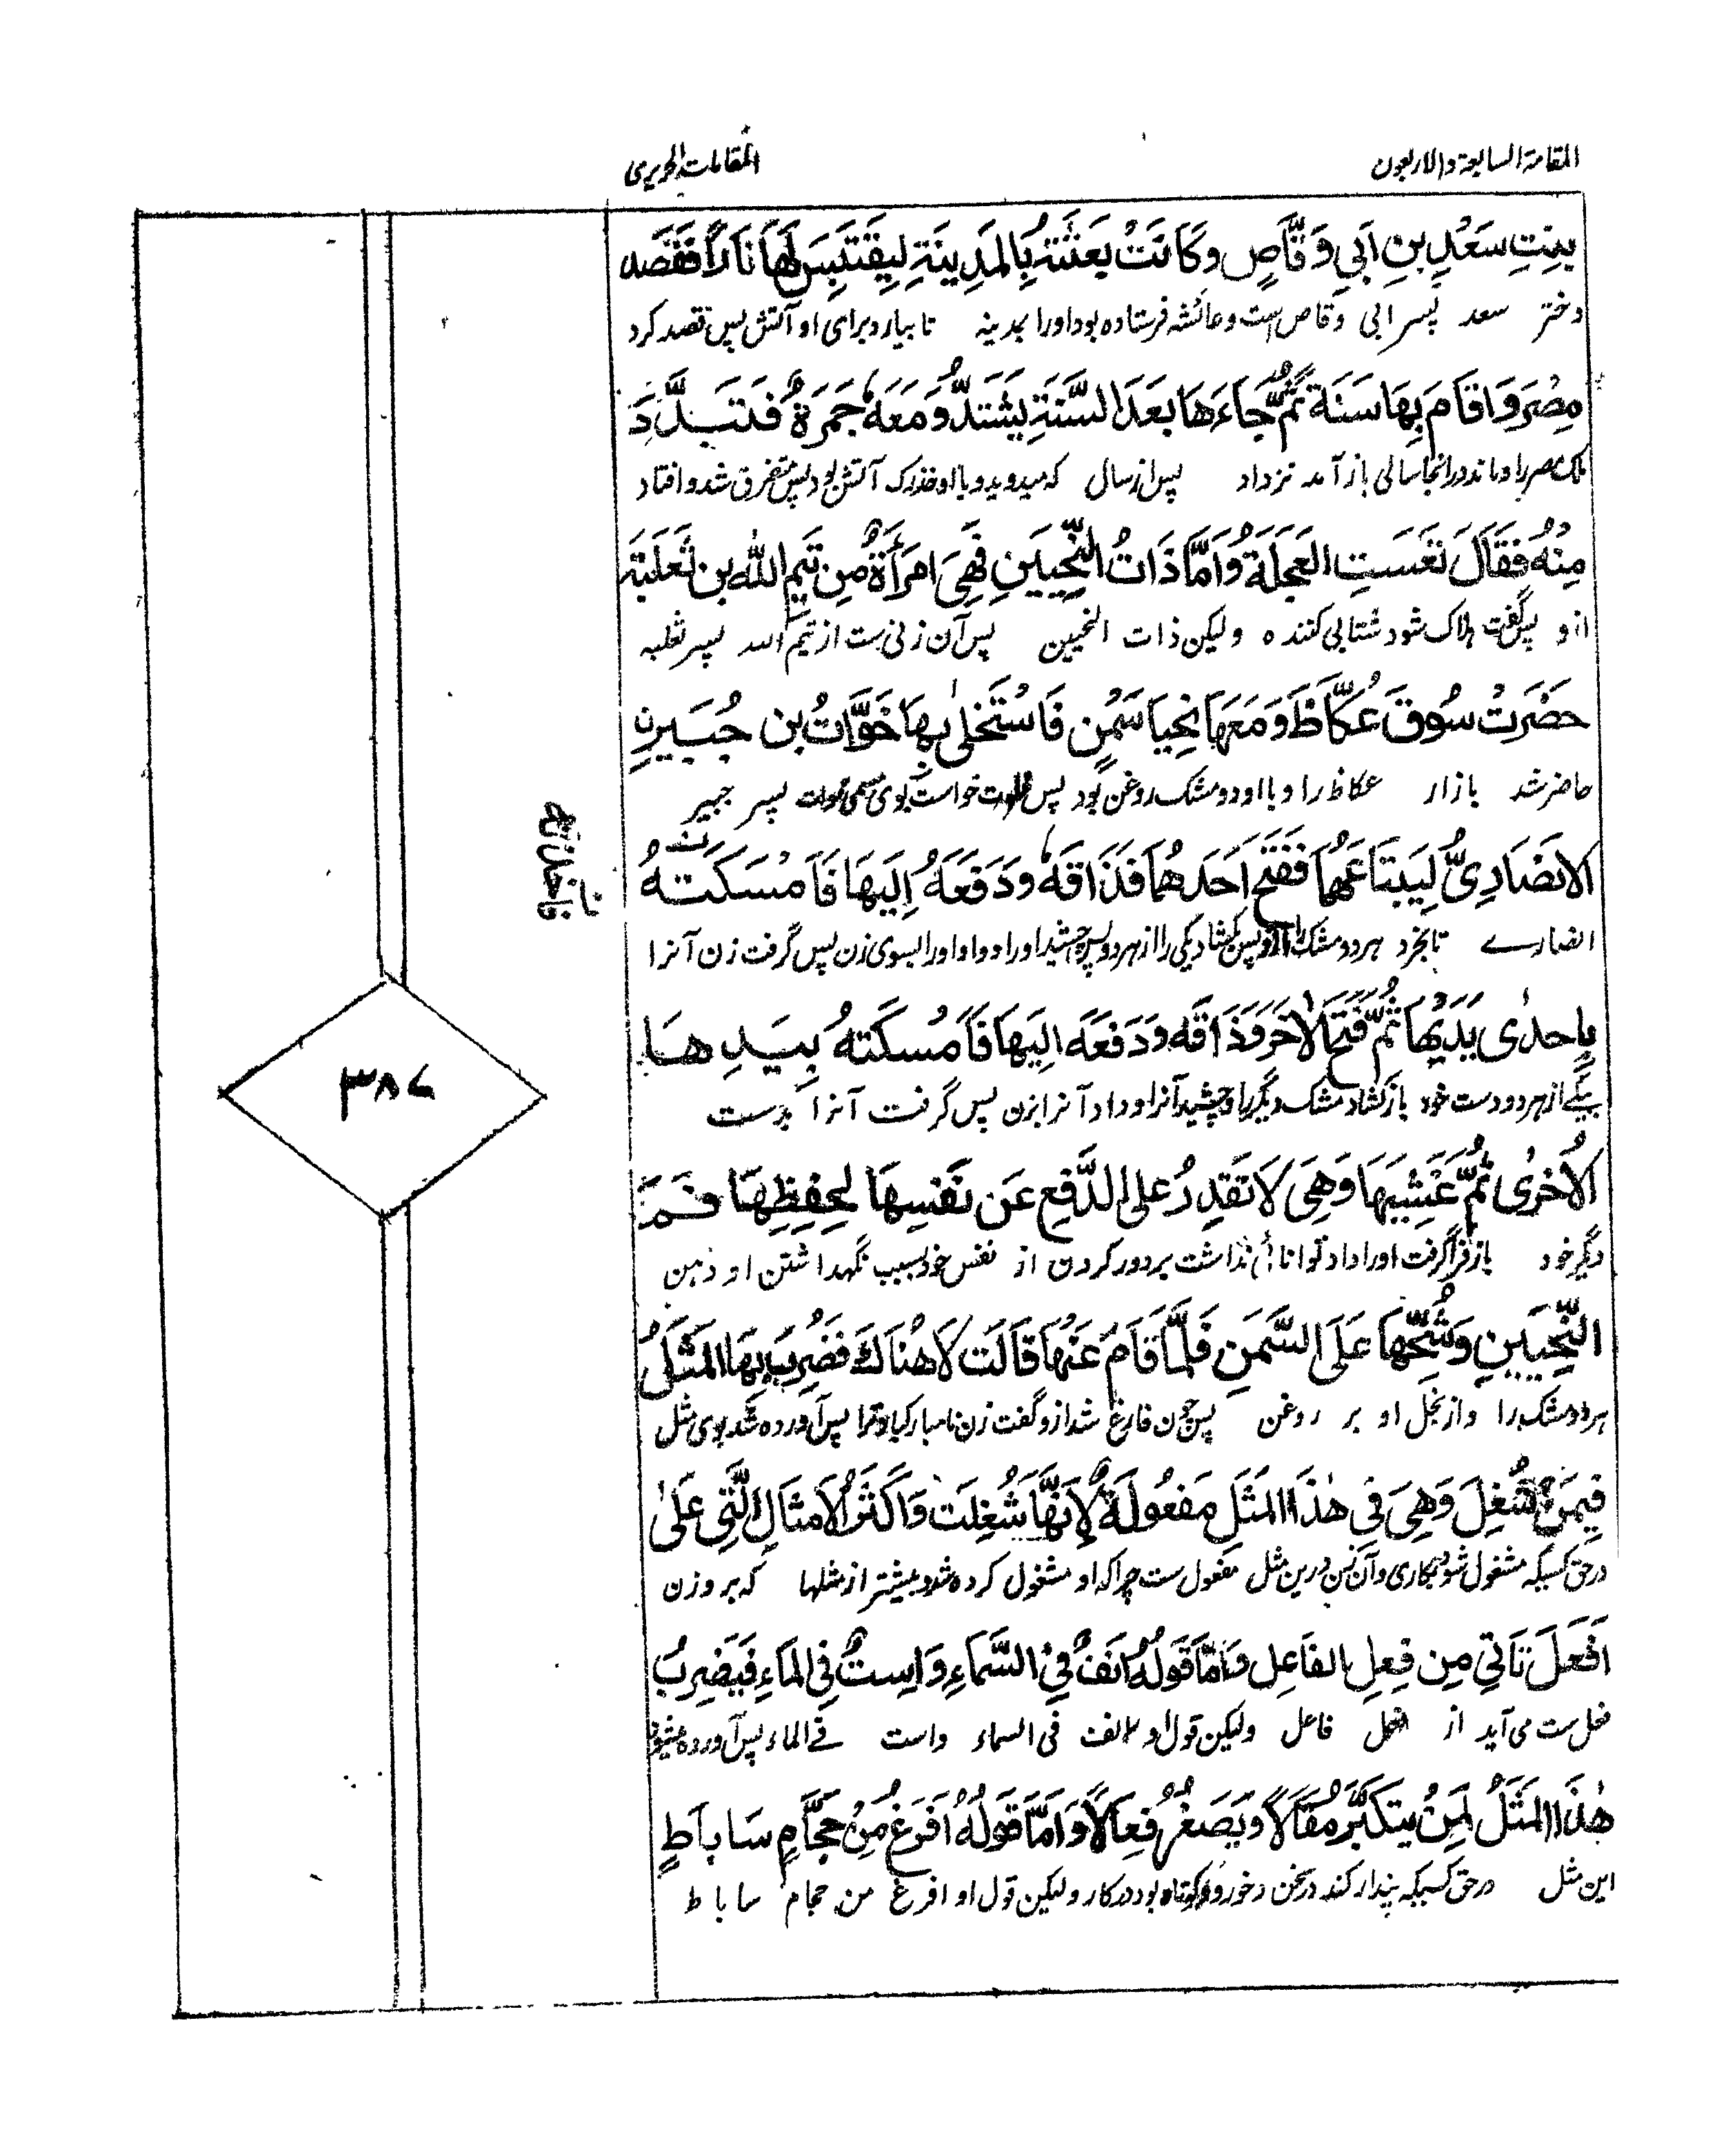 المقامة السابعة والاربعون
المقامات الحریری
بِنتِ سَعْدِ بنِ اَبي وَقَّاصٍ وكَانَتْ بَعَثَتْهُ بِالمَدِينَةِ لِيَقتَبِسَ لَهَا نَارًا فَقَصَد
دختر سعد پسر ابی وقاص است و عائشه فرستاده بود اورا بمدینه تا بیارد برای او آتش پس قصد کرد
مِصْرَ وَاقَامَ بِهَا سَنَةً ثُمَّ جَاءَهَا بَعدَ السَّنَةِ يَشْتَدُّ وَمَعَهُ جَمَرَةٌ فَتَبَدَّدَ
ملک مصر را و ماند در انجا سالی باز آمد نزد او پس از سال که میدوید و با او اخگر آتش بود پس متفرق شد و افتاد
مِنْهُ فَقَالَ تَعَسَتِ العَجَلَةُ وَاَمَّا ذَاتُ النِّحْيَينِ فَهِيَ امرَأَةٌ مِن تَيمِ اللّٰه بن ثَعلَبَة
ازو پس گفت هلاک شود شتابی کننده ولیکن ذات النحیین پس آن زنی ست از تیم الله پسر ثعلبه
حَضَرَتْ سُوقَ عُكَّاظَ وَمَعَهَا نِحيَا سَمْنٍ فَاسْتَخلٰی بِهَا خَوَّاتُ بن جُبَيرِن
حاضر شد بازار عکاظ را و با او دو مشک روغن بود پس خلوت خواست بوی مسمی خوات پسر جبیر
الاَنصَارِيُّ لِيَبتَاعَهُمَا فَفَتَحَ اَحَدَهُمَا فَذَاقَهُ ودَفَعَهُ اِلَيهَا فَاَمْسَكَتهُ
انصارے تا بخرد هر دو مشک را ازو پس کشاد یکی را از هر دو پس چشید اورا و داد اورا بسوی زن پس گرفت زن آنرا
بِاِحدٰی يَدَيْهَا ثُمَّ فَتَحَ الاٰخَرَ وَذَاقَه وَدَفَعَه اِلَيهَا فَاَمْسَكَتهُ بِيَدِهَا
بیکے از هر دو دست خود باز کشاد مشک دیگر را و چشید آنرا و داد آنرا بزن پس گرفت آنرا بدست
الاُخرٰی ثُمَّ غَشِيَهَا وَهِيَ لَا تَقدِرُ علی الدَّفعِ عَن نَفسِهَا لِحِفِظِهَا فَمَ
دیگر خود باز فرا گرفت اورا و او توانائی نداشت بر دور کردن از نفس خود بسبب نگهداشتن او دهن
النِّحيَينِ وَشُحِّهَا عَلَى السَّمَنِ فَلَمَّا قَامَ عَنْهَا قَالَت لَا هَنَاكَ فَضُرِبَ بِهَا المَثَلُ
هر دو مشک را و از بخل او بر روغن پس چون فارغ شد ازو گفت زن نامبارک باد ترا پس آورده شد بوی مثل
فِيمَن شُغِلَ وَهِيَ فِي هٰذَا المَثَلِ مَفعُولَةٌ لِاَنَّهَا شُغِلَت وَاَكثَرُ الاَمثَالِ الَّتِي عَلٰی
در حق کسیکه مشغول شود بکاری و آن زن درین مثل مفعول ست چرا که او مشغول کرده شد و بیشتر از مثلها که بر وزن
اَفعَلَ تَأتِي مِن فِعلِ الفَاعِل وَاَمَّا قَولُهُ اَنفٌ فِي السَّمَاءِ وَاِستٌ فِي المَاءِ فَيُضرِبُ
افعل ست می آید از فعل فاعل ولیکن قول او انف فی السماء واست فے الماء پس آورده میشود
هٰذَا المَثَلُ لِمَنْ يَتَكَبَّرُ مَقَالًا وَيَصغُرُ فِعَالًا وَاَمَّا قَولُهُ اَفرَغُ مِنْ حَجَّامِ سَابَاطٍ
این مثل در حق کسیکه پندار کند در سخن و خورد و کوتاه بود در کار ولیکن قول او افرغ من حجام ساباط
۳۸۷